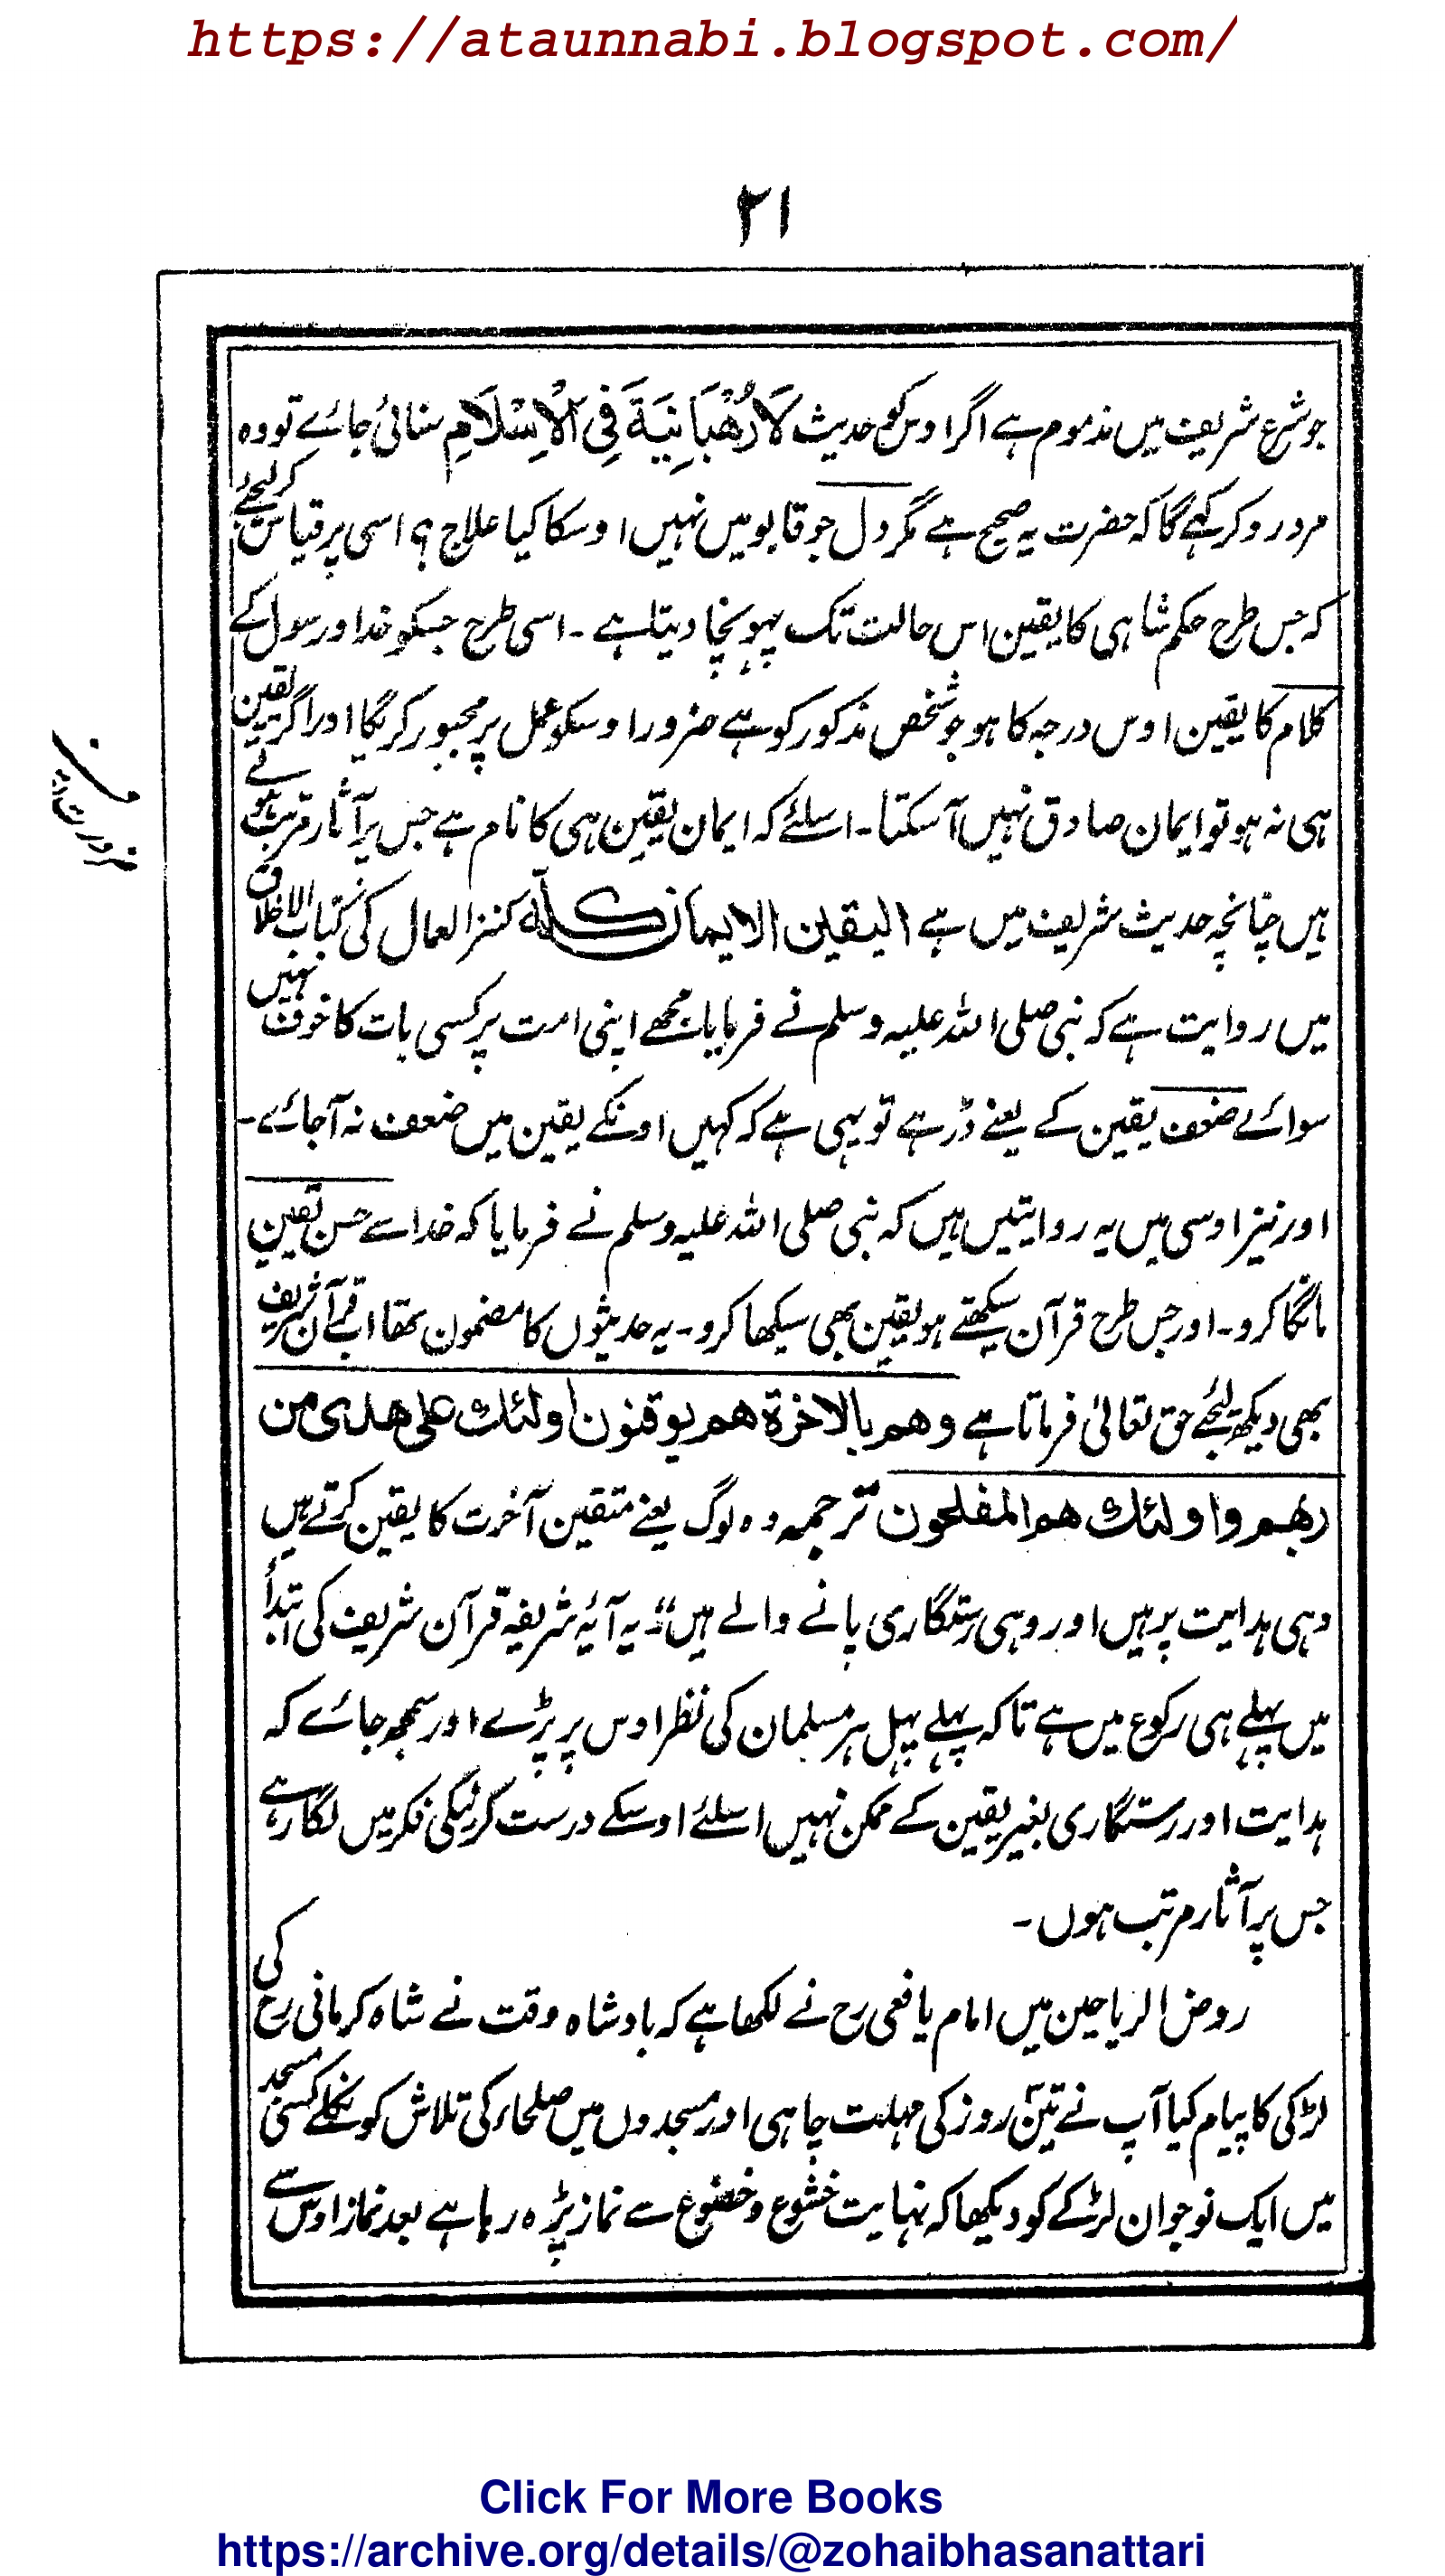 https://ataunnabi.blogspot.com/
۲۱
جو شرع شریف میں مذموم ہے اگر اوس کو حدیث لَا رُهْبَانِيَةَ فِى الْاِسْلَامِ سنائی جائے تو وہ
مرد رو کر کہے گا کہ حضرت یہ صحیح ہے مگر دل جو قابو میں نہیں اوسکا کیا علاج ؟ اسی پر قیاس کر لیجئے
کہ جس طرح حکم شاہی کا یقین اس حالت تک پہونچا دیتا ہے ۔ اسی طرح جسکو خدا و رسول کے
کلام کا یقین اوس درجہ کا ہو جو شخص مذکور کو ہے ضرور اوسکو عمل پر مجبور کریگا اور اگر یقین
ہی نہ ہو تو ایمان صادق نہیں آسکتا ۔ اسلئے کہ ایمان یقین ہی کا نام ہے جس پر آثار مرتب ہوتے
ہیں چنانچہ حدیث شریف میں ہے اليقين الايمان كله کنز العمال کی کتاب الاخلاق
میں روایت ہے کہ نبی صلی اللہ علیہ وسلم نے فرمایا مجھے اپنی امت پر کسی بات کا خوف نہیں
سوائے ضعف یقین کے یعنے ڈر ہے تو یہی ہے کہ کہیں اونکے یقین میں ضعف نہ آجائے ۔
اور نیز اوسی میں یہ روایتیں ہیں کہ نبی صلی اللہ علیہ وسلم نے فرمایا کہ خدا سے حسن یقین
مانگا کرو ۔ اور جس طرح قرآن سیکھتے ہو یقین بھی سیکھا کرو ۔ یہ حدیثوں کا مضمون تھا اب قرآن شریف
بھی دیکھ لیجئے حق تعالیٰ فرماتا ہے وهم بالاخرة هم يوقنون اولئك على هدى من
ربهم واولئك هم المفلحون ترجمہ وہ لوگ یعنے متقین آخرت کا یقین کرتے ہیں
وہی ہدایت پر ہیں اور وہی رستگاری پانے والے ہیں" یہ آیۂ شریفہ قرآن شریف کی ابتدأ
میں پہلے ہی رکوع میں ہے تاکہ پہلے پہل ہر مسلمان کی نظر اوس پر پڑے اور سمجھ جائے کہ
ہدایت اور رستگاری بغیر یقین کے ممکن نہیں اسلئے اوسکے درست کرنیکی فکر میں لگا رہے
جس پر آثار مرتب ہوں ۔
روض الریاحین میں امام یافعی رح نے لکھا ہے کہ بادشاہ وقت نے شاہ کرمانی رح کی
لڑکی کا پیام کیا آپ نے تین روز کی مہلت چاہی اور مسجدوں میں صلحاء کی تلاش کو نکلے کسی مسجد
میں ایک نوجوان لڑکے کو دیکھا کہ نہایت خشوع و خضوع سے نماز پڑہ رہا ہے بعد نماز اوس سے
Click For More Books
https://archive.org/details/@zohaibhasanattari